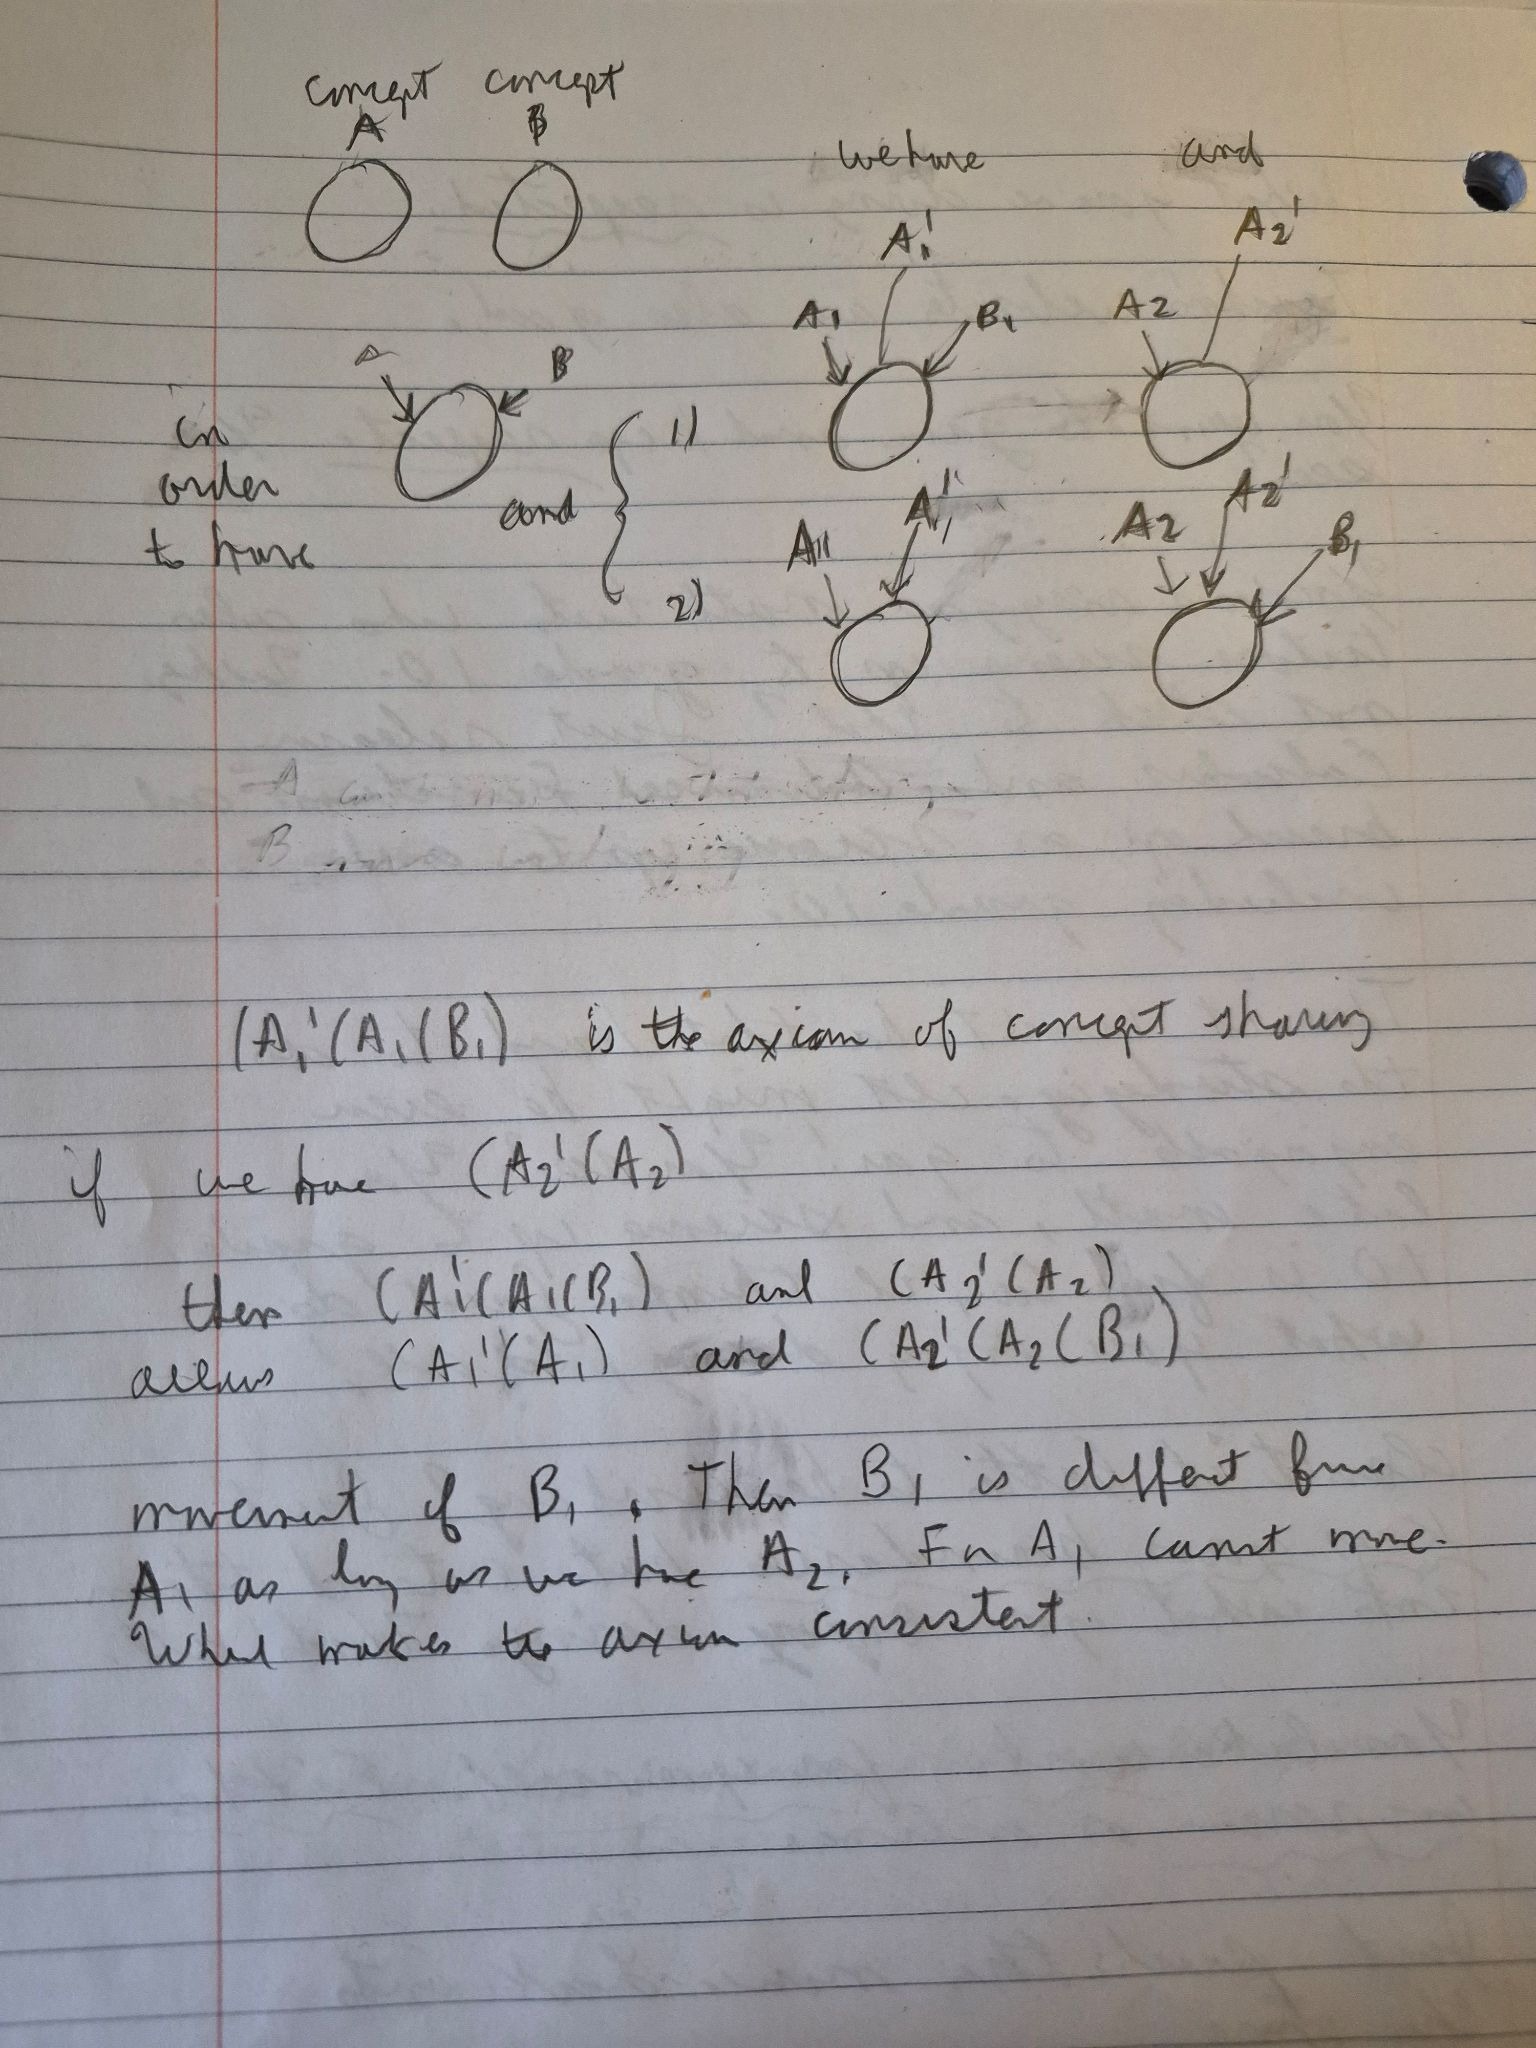 concept concept
A B
we have and
A₁' A₂'
A₁ B₁ A2
A B
in order to have
and
1)
A₁' A2'
A₁₁ A2 B₁
2)
A
B
(A₁'(A₁(B₁) is the axiom of concept sharing
if we have (A₂'(A₂)
then (A₁'(A₁(B₁) and (A₂'(A₂)
allows (A₁'(A₁) and (A₂'(A₂(B₁)
movement of B₁. Then B₁ is different from
A₁ as long as we have A₂. For A₁ cannot move.
What makes the axiom consistent.